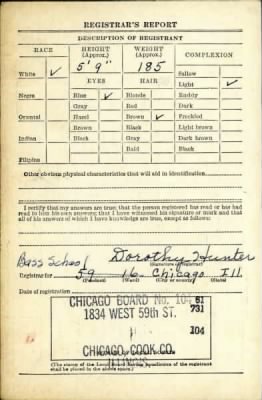 REGISTRAR'S REPORT
DESCRIPTION OF REGISTRANT
RACE HEIGHT (Approx.) WEIGHT (Approx.) COMPLEXION
5' 9" 185
White ✓ Sallow
EYES HAIR Light ✓
Negro Blue ✓ Blonde Ruddy
Gray Red Dark
Oriental Hazel Brown ✓ Freckled
Brown Black Light brown
Indian Black Gray Dark brown
Bald Black
Filipino
Other obvious physical characteristics that will aid in identification
I certify that my answers are true; that the person registered has read or has had
read to him his own answers; that I have witnessed his signature or mark and that
all of his answers of which I have knowledge are true, except as follows:
Bass School Dorothy Hunter
(Signature of registrar)
Registrar for 59 16 Chicago Ill.
(Precinct) (Ward) (City or county) (State)
Date of registration
CHICAGO BOARD No. 104 61
1834 WEST 59th ST. 731
104
CHICAGO COOK CO.
ILLINOIS
(The stamp of the Local Board having jurisdiction of the registrant
shall be placed in the above space.)